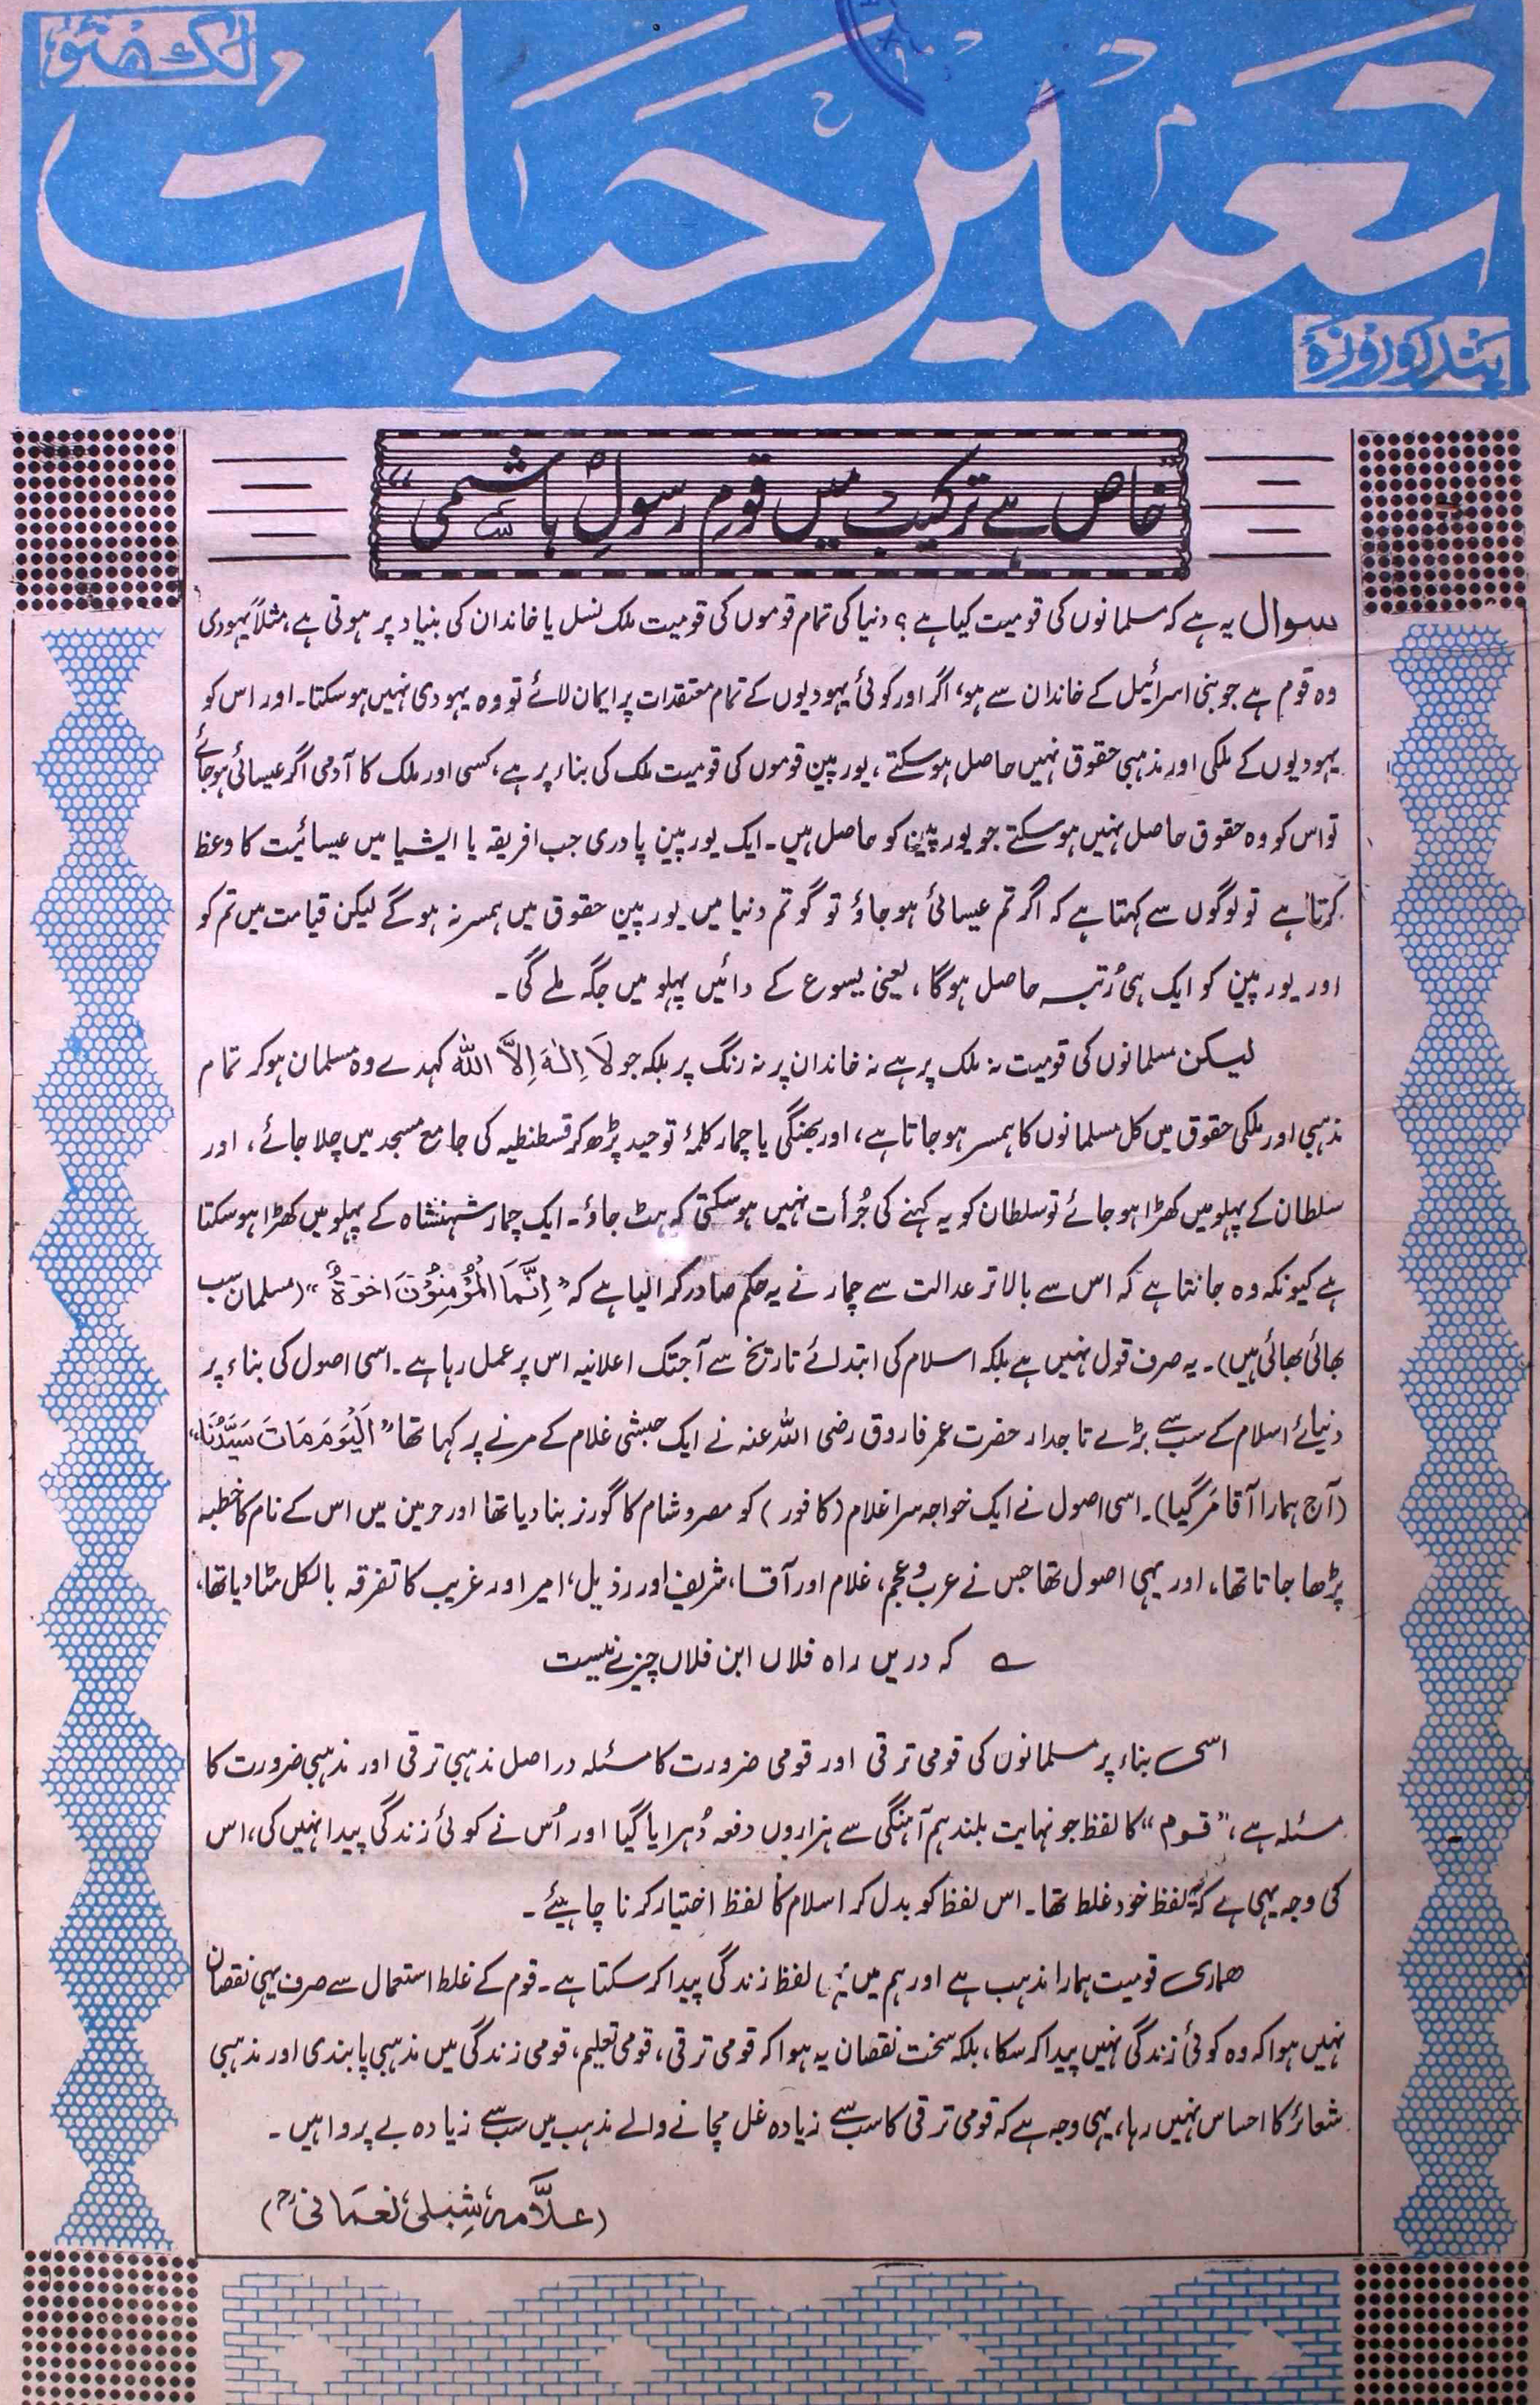 لکھنؤ
تعمیر حیات
پندرہ روزہ
"خاص ہے ترکیب میں قومِ رسولِ ہاشمی"
سوال یہ ہے کہ مسلمانوں کی قومیت کیا ہے؟ دنیا کی تمام قوموں کی قومیت ملک نسل یا خاندان کی بنیاد پر ہوتی ہے، مثلاً یہودی
وہ قوم ہے جو بنی اسرائیل کے خاندان سے ہو، اگر اور کوئی یہودیوں کے تمام معتقدات پر ایمان لائے تو وہ یہودی نہیں ہوسکتا۔ اور اس کو
یہودیوں کے ملکی اور مذہبی حقوق نہیں حاصل ہوسکتے، یورپین قوموں کی قومیت ملک کی بناء پر ہے، کسی اور ملک کا آدمی اگر عیسائی ہوجائے
تو اس کو وہ حقوق حاصل نہیں ہوسکتے جو یورپین کو حاصل ہیں۔ ایک یورپین پادری جب افریقہ یا ایشیا میں عیسائیت کا وعظ
کرتا ہے تو لوگوں سے کہتا ہے کہ اگر تم عیسائی ہوجاؤ تو گو تم دنیا میں یورپین حقوق میں ہمسر نہ ہوگے لیکن قیامت میں تم کو
اور یورپین کو ایک ہی رُتبہ حاصل ہوگا، یعنی یسوع کے دائیں پہلو میں جگہ ملے گی۔
لیکن مسلمانوں کی قومیت نہ ملک پر ہے نہ خاندان پر نہ رنگ پر بلکہ جو لَا اِلٰہَ اِلَّا اللہ کہدے وہ مسلمان ہوکر تمام
مذہبی اور ملکی حقوق میں کل مسلمانوں کا ہمسر ہوجاتا ہے، اور بھنگی یا چمار کلمۂ توحید پڑھ کر قسطنطیہ کی جامع مسجد میں چلا جائے، اور
سلطان کے پہلو میں کھڑا ہوجائے تو سلطان کو یہ کہنے کی جُرأت نہیں ہوسکتی کہ ہٹ جاؤ۔ ایک چمار شہنشاہ کے پہلو میں کھڑا ہوسکتا
ہے کیونکہ وہ جانتا ہے کہ اس سے بالاتر عدالت سے چمار نے یہ حکم صادر کرالیا ہے کہ "اِنَّمَا الْمُؤْمِنُوْنَ اِخْوَۃٌ" (مسلمان سب
بھائی بھائی ہیں)۔ یہ صرف قول نہیں ہے بلکہ اسلام کی ابتدائے تاریخ سے آجتک اعلانیہ اس پر عمل رہا ہے۔ اسی اصول کی بناء پر
دنیائے اسلام کے سب سے بڑے تاجدار حضرت عمر فاروق رضی اللہ عنہ نے ایک حبشی غلام کے مرنے پر کہا تھا "اَلْیَوْمَ مَاتَ سَیِّدُنَا"
(آج ہمارا آقا مرگیا)۔ اسی اصول نے ایک خواجہ سرا غلام (کافور) کو مصر و شام کا گورنر بنا دیا تھا اور حرمین میں اس کے نام کا خطبہ
پڑھا جاتا تھا، اور یہی اصول تھا جس نے عرب و عجم، غلام اور آقا، شریف اور رذیل، امیر اور غریب کا تفرقہ بالکل مٹا دیا تھا،
؎ کہ دریں راہ فلاں ابن فلاں چیزے نیست
اسی بناء پر مسلمانوں کی قومی ترقی اور قومی ضرورت کا مسئلہ دراصل مذہبی ترقی اور مذہبی ضرورت کا
مسئلہ ہے، "قوم" کا لفظ جو نہایت بلند ہم آہنگی سے ہزاروں دفعہ دُہرایا گیا اور اُس نے کوئی زندگی پیدا نہیں کی، اس
کی وجہ یہی ہے کہ یہ لفظ خود غلط تھا۔ اس لفظ کو بدل کر اسلام کا لفظ اختیار کرنا چاہیئے۔
ہماری قومیت ہمارا مذہب ہے اور ہم میں یہی لفظ زندگی پیدا کرسکتا ہے۔ قوم کے غلط استعمال سے صرف یہی نقصان
نہیں ہوا کہ وہ کوئی زندگی نہیں پیدا کرسکا، بلکہ سخت نقصان یہ ہوا کہ قومی ترقی، قومی تعلیم، قومی زندگی میں مذہبی پابندی اور مذہبی
شعائر کا احساس نہیں رہا، یہی وجہ ہے کہ قومی ترقی کا سب سے زیادہ غل مچانے والے مذہب میں سب سے زیادہ بے پروا ہیں۔
(علّامہ شبلی نعمانیؒ)